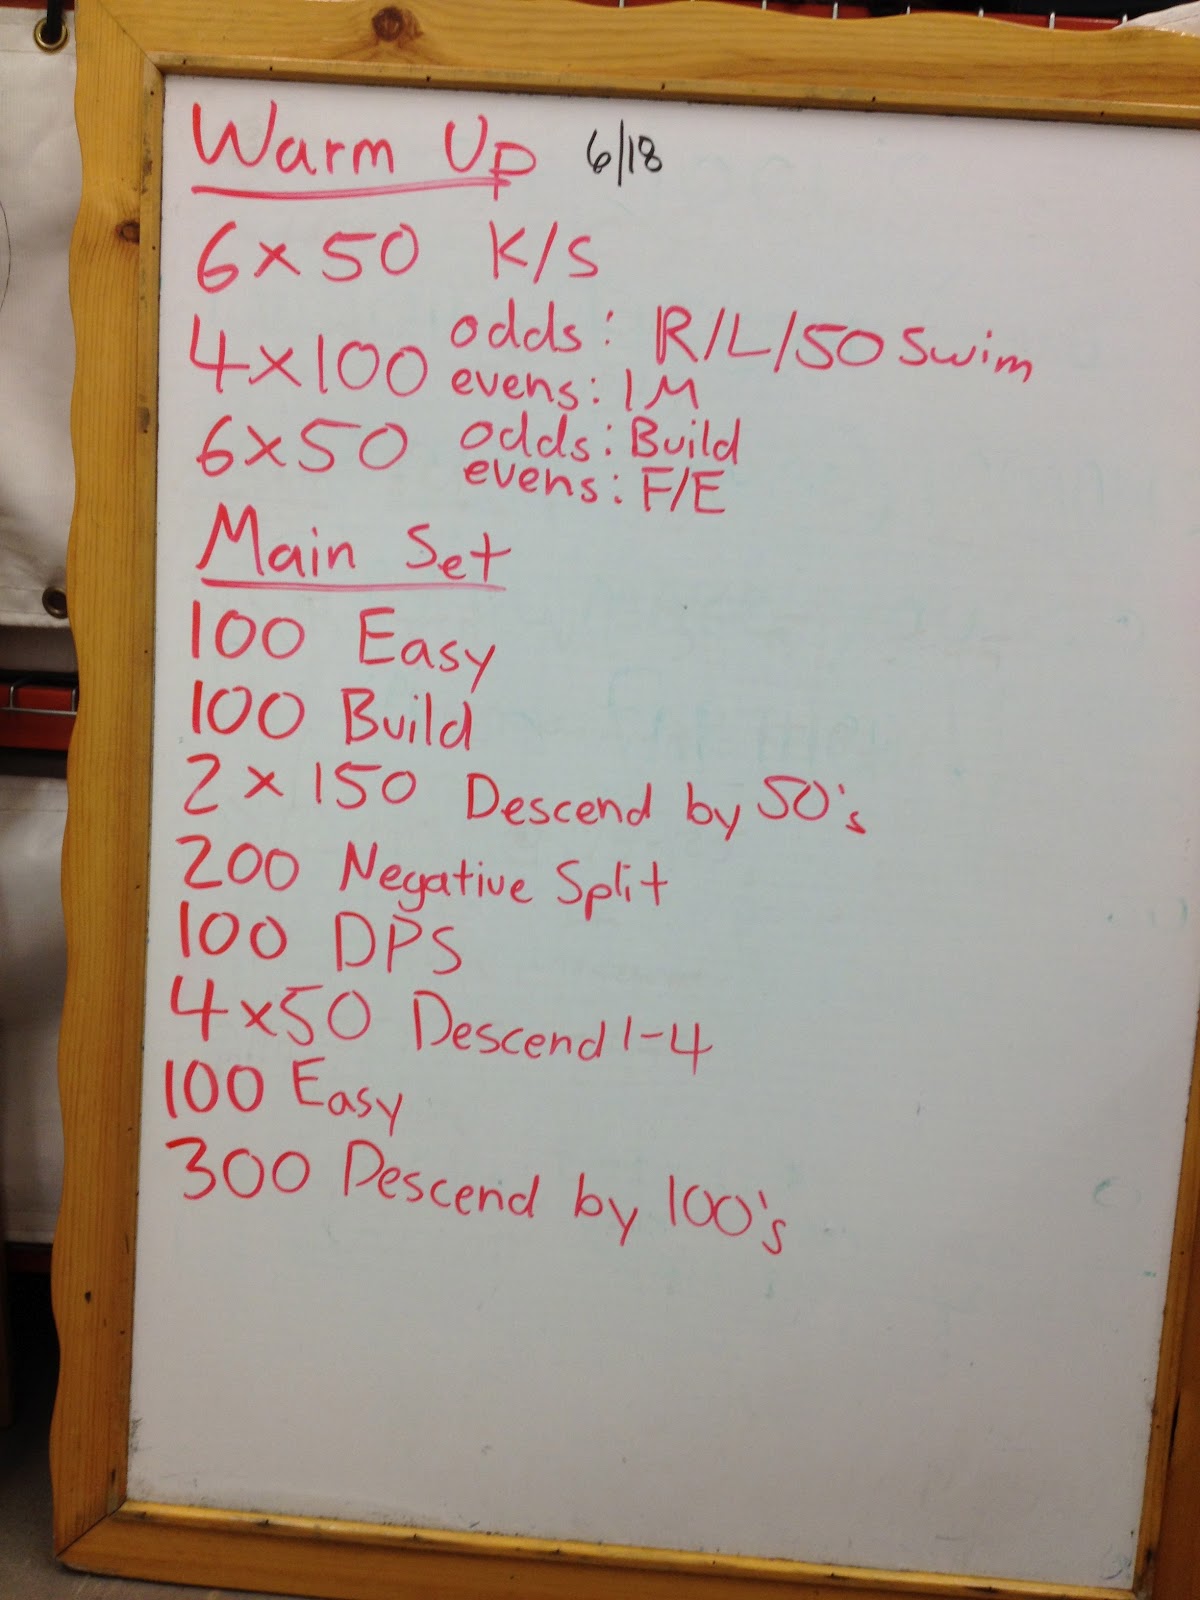 Warm Up 6/18
6x50 K/S
4x100 odds: R/L/50 Swim
evens: IM
6x50 odds: Build
evens: F/E
Main Set
100 Easy
100 Build
2 x 150 Descend by 50's
200 Negative Split
100 DPS
4x50 Descend 1-4
100 Easy
300 Descend by 100's